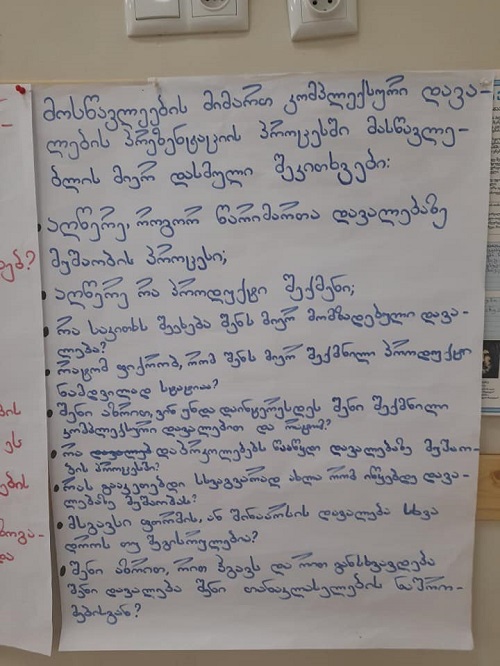 მოსწავლეების მიმართ კომპლექსური დავა-
ლების პრეზენტაციის პროცესში მასწავლე-
ბლის მიერ დასმული შეკითხვები:
აღწერე, როგორ წარიმართა დავალებაზე
მუშაობის პროცესი;
აღწერე რა პროდუქტი შექმენი;
რა საკითხს შეეხება შენს მიერ მომზადებული დავა-
ლება?
რატომ ფიქრობ, რომ შენს მიერ შექმნილი პროდუქტი
ნამდვილად
შენი აზრით, ვინ უნდა დაინტერესდეს შენი შექმნილი
კომპლექსური დავალებით და რატომ?
რა დაბრკოლებებს წააწყდი დავალებაზე მუშაო-
ბის პროცესში?
რას გააკეთებდი სხვაგვარად ახლა რომ იწყებდე დავა-
ლებაზე მუშაობას?
მსგავსი ფორმის, ან შინაარსის დავალება სხვა
დროს თუ შეგისრულებია?
შენი აზრით, რით ჰგავს და რით განსხვავდება
შენი დავალება შენი თანაკლასელების ნაშრო-
მებისგან?